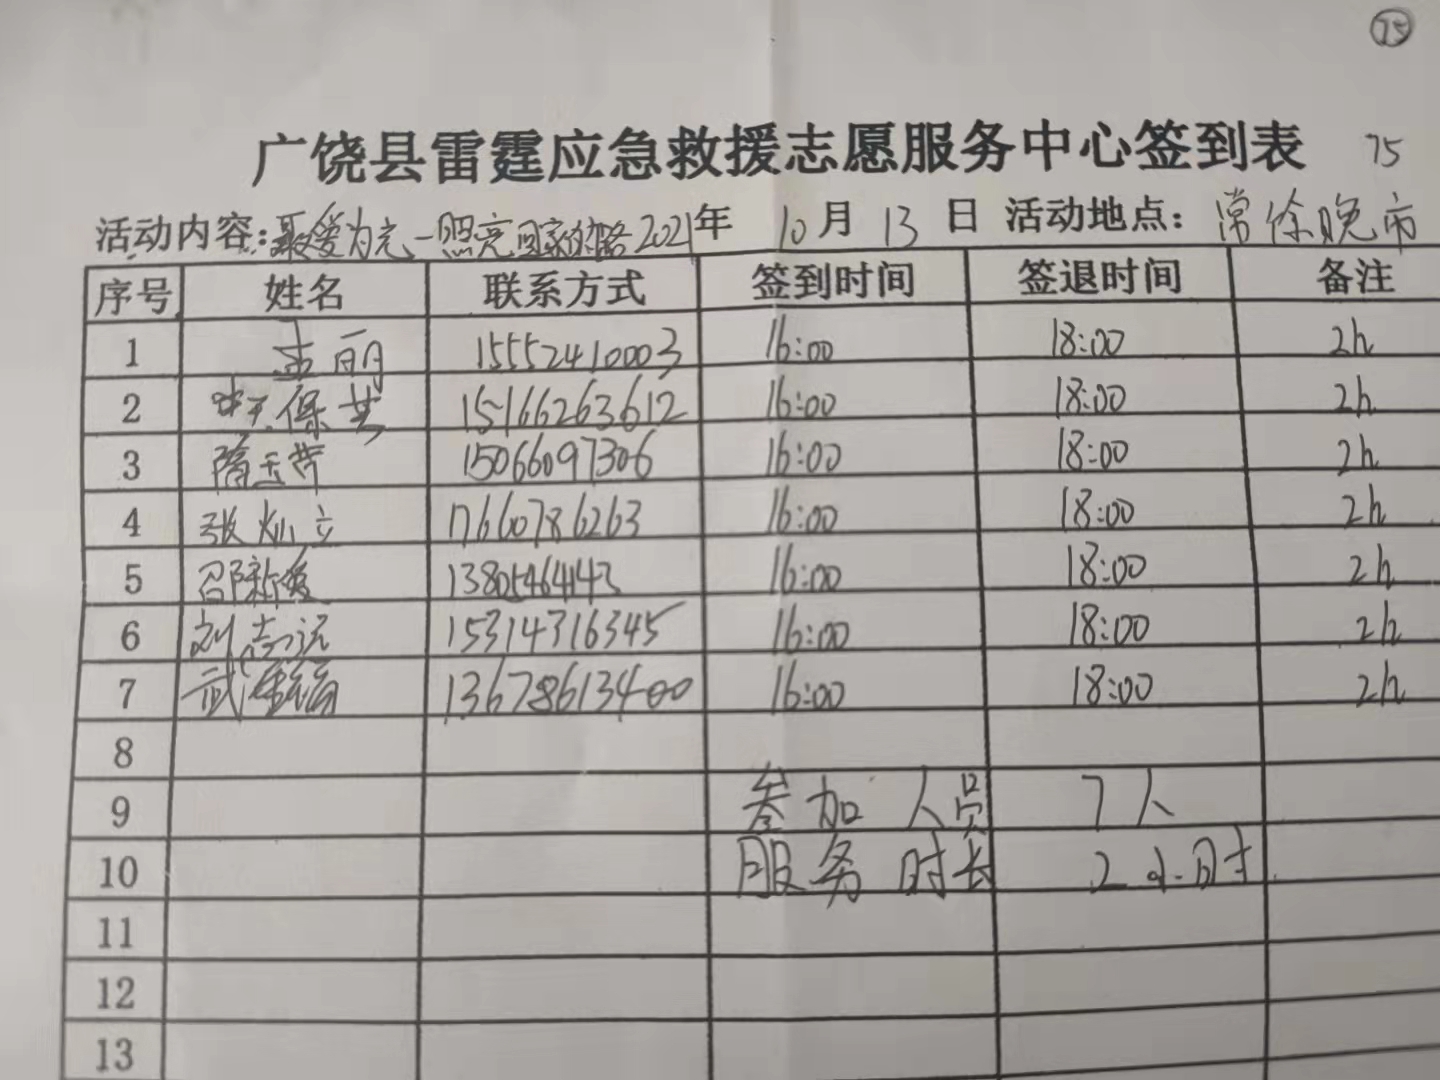 75
广饶县雷霆应急救援志愿服务中心签到表 75
活动内容:聚爱为光一照亮回家的路2021年 10月 13日 活动地点:常徐晚市
序号 姓名 联系方式 签到时间 签退时间 备注
1 孟丽 15552410003 16:00 18:00 2h
2 保芝 15166263612 16:00 18:00 2h
3 隋玉芹 15066097306 16:00 18:00 2h
4 张灿立 17660786263 16:00 18:00 2h
5 邵新爱 13805464143 16:00 18:00 2h
6 刘志远 15314316345 16:00 18:00 2h
7 武 13678613400 16:00 18:00 2h
8
9 参加人员 7人
10 服务时长 2小时
11
12
13